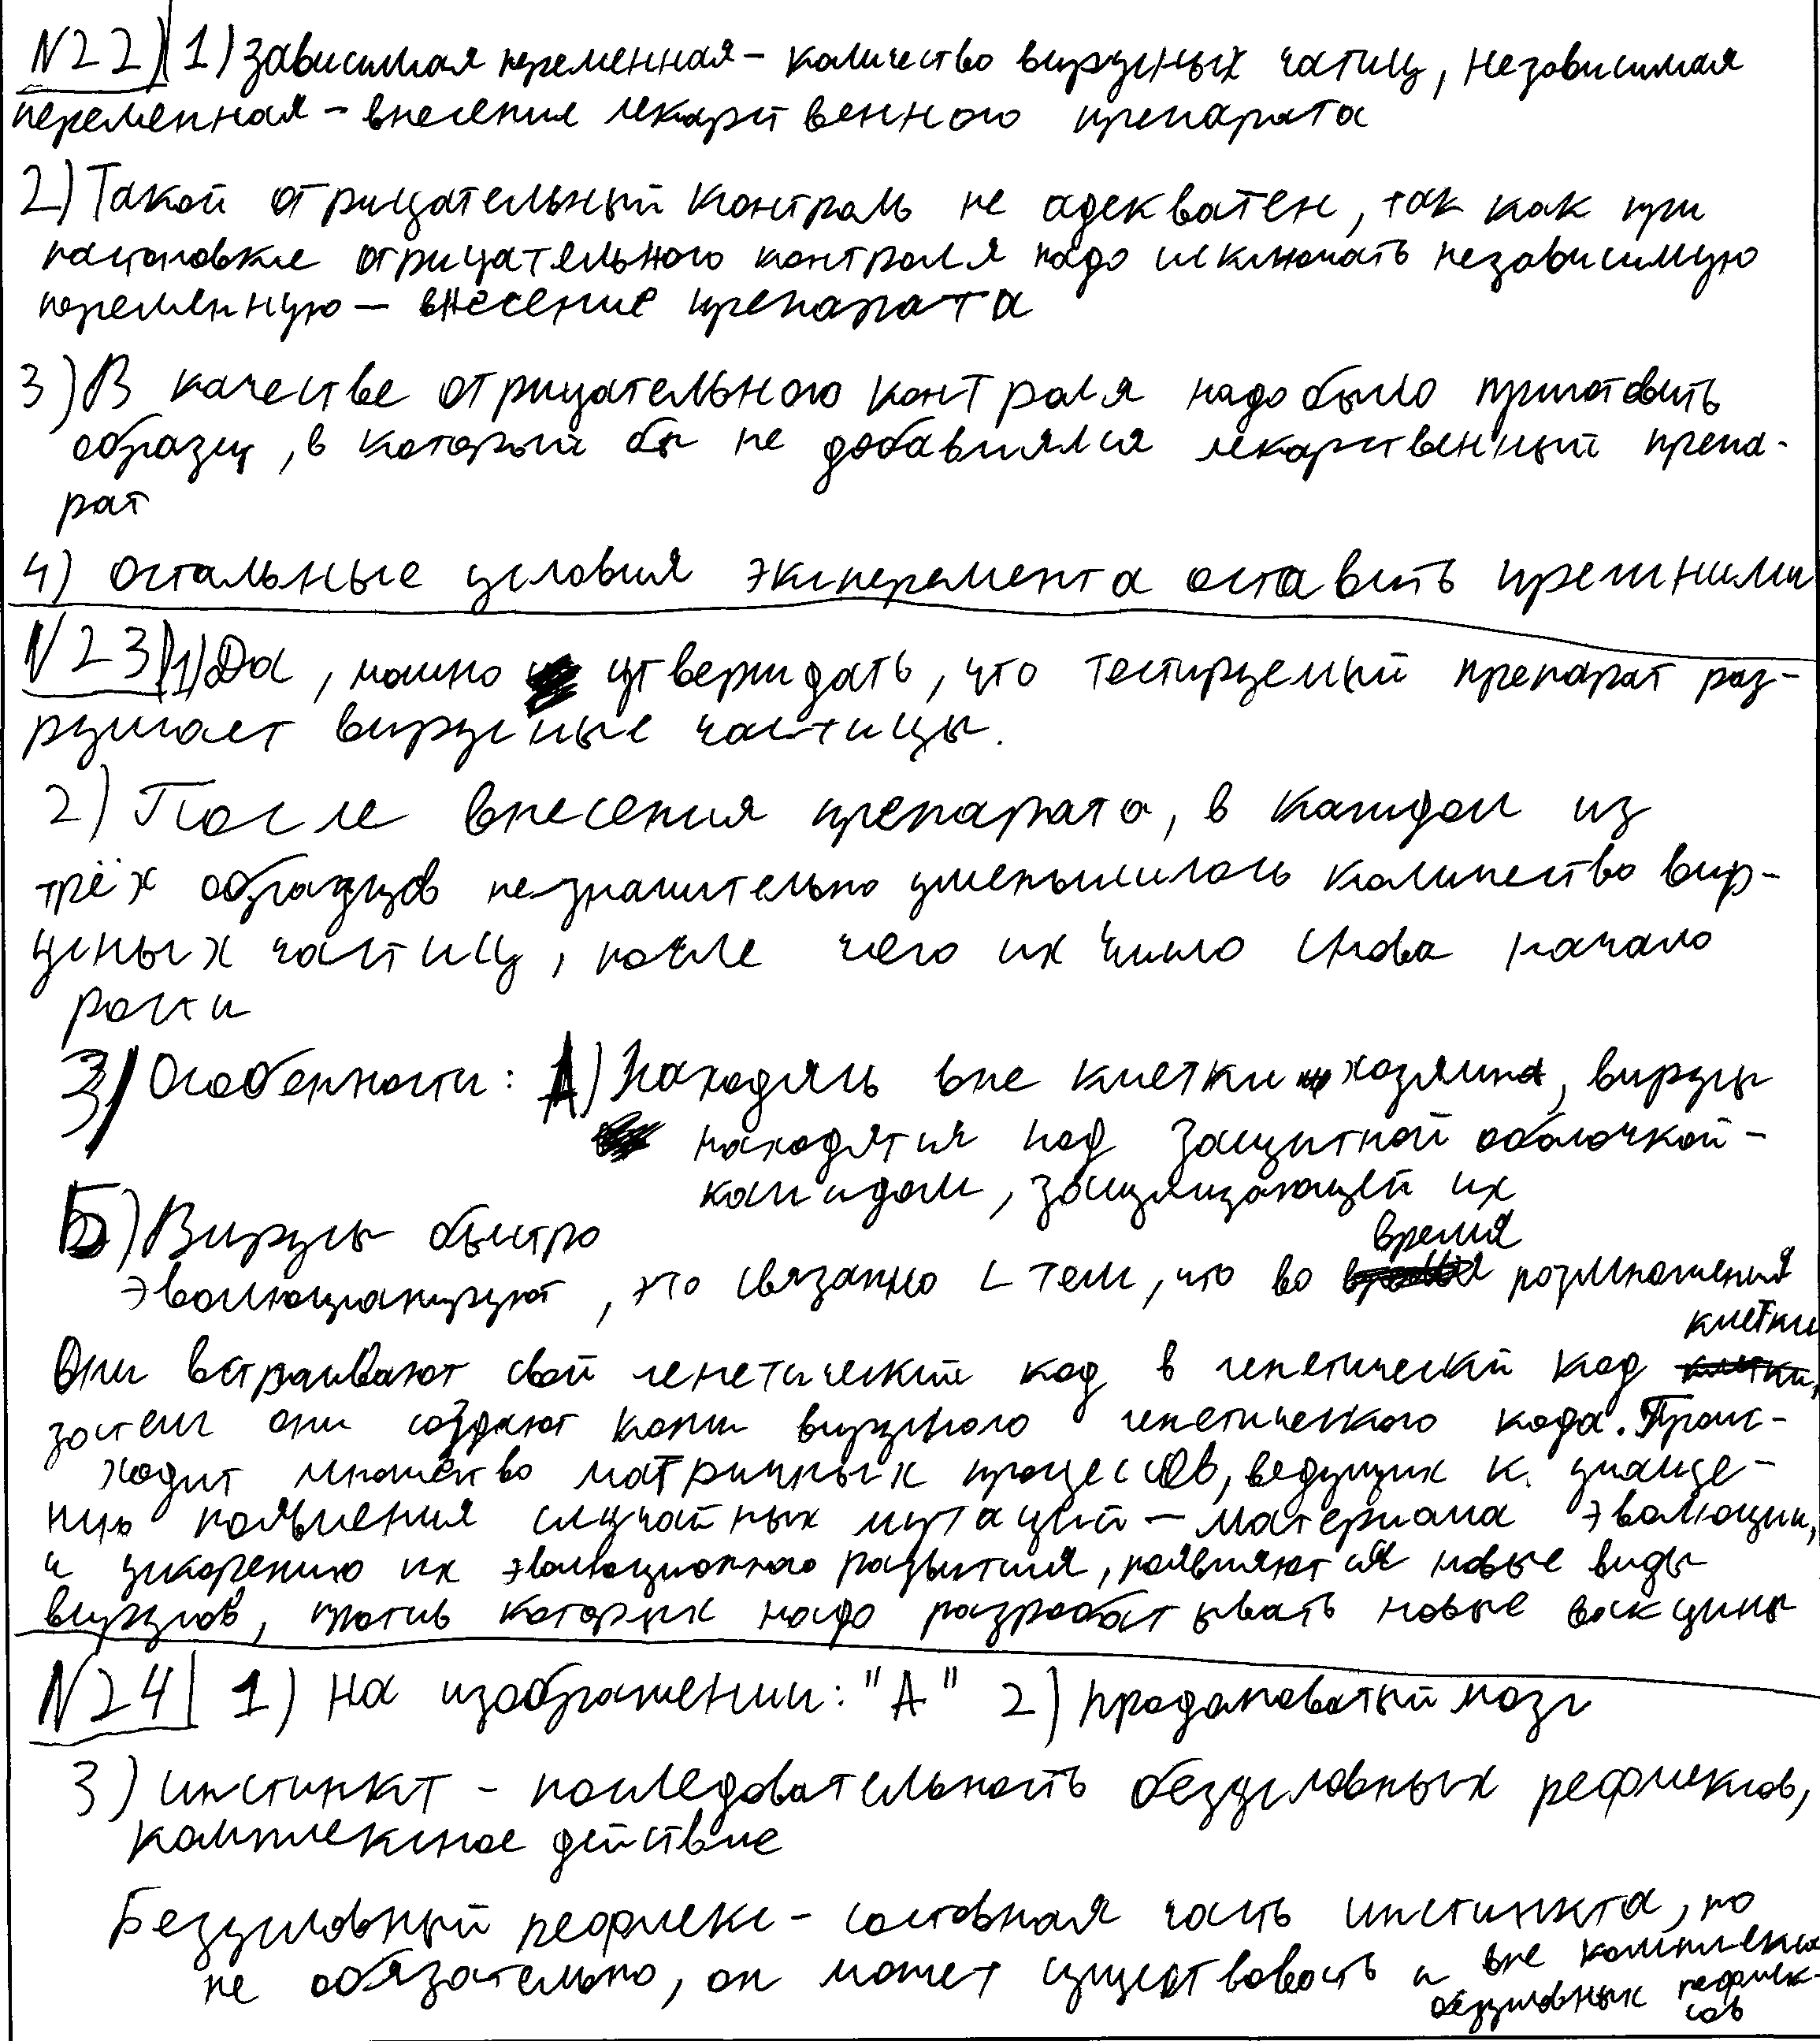 N22) 1) Зависимая переменная – количество вирусных частиц, независимая
переменная – внесения лекарственного препарата
2) Такой отрицательный контроль не адекватен, так как при
постановке отрицательного контроля надо исключать независимую
переменную — внесение препарата
3) В качестве отрицательного контроля надо было приготовить
образец, в который бы не добавлялся лекарственный препа-
рат
4) Остальные условия эксперемента оставить прежними
N23 1) Да, можно утверждать, что тестируемый препарат раз-
рушает вирусные частицы.
2) После внесения препарата, в каждом из
трёх образцов незначительно уменьшилось количество вир-
усных частиц, после чего их число снова начало
расти
3) Особенности: А) Находясь вне клетки хозяина, вирусы
находятся под защитной оболочкой –
капсидом, защищающей их
Б) Вирусы быстро
эволюционируют, это связанно с тем, что во время размножения
Они встраивают свой генетический код в генетический код клетки,
затем они создают копии вирусного генетического кода. Проис-
ходит множество матричных процессов, ведущих к учаще-
нию появления случайных мутаций – материала эволюции,
и ускорению их эволюционного развития, появляются новые виды
вирусов, против которых надо разрабатывать новые вакцины
N24 1) На изображении: "А" 2) продолговатый мозг
3) инстинкт – последовательность безусловных рефлексов,
комплексное действие
Безусловный рефлекс – составная часть инстинкта, но
не обязательно, он может существовать и вне комплекса
безусловных рефлек-
сов